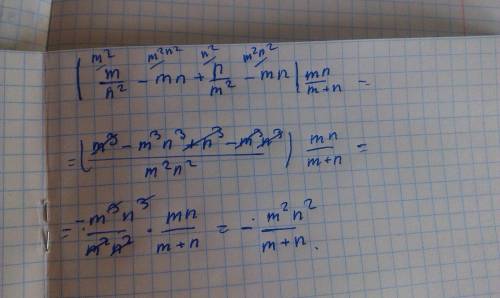 ( m^2/ m/n^2 - m^2n^2/ mn + n^2/ n/m^2 - m^2n^2/ mn ) mn/(m+n) =
= ( (m^3 - m^3n^3 + n^3 - m^3n^3)/(m^2n^2) ) mn/(m+n) =
= - (m^3n^3)/(m^2n^2) · mn/(m+n) = - (m^2n^2)/(m+n).